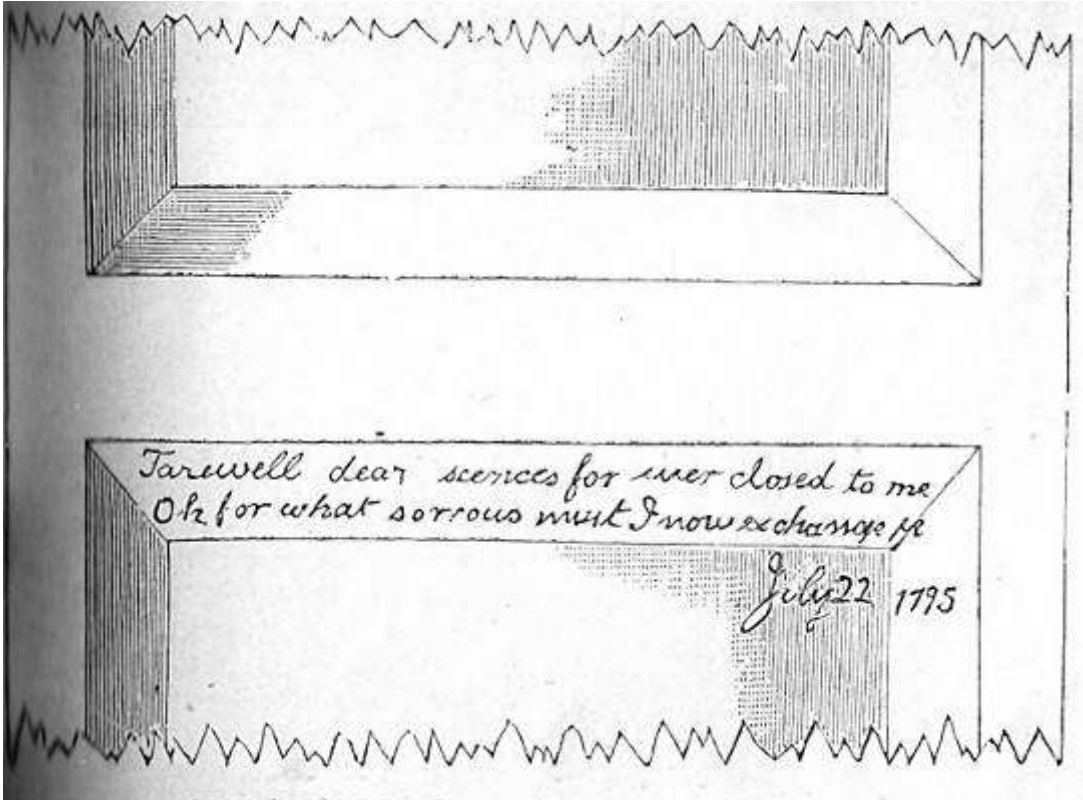 Farewell dear scences for ever closed to me
Oh for what sorrous must I now exchange ye
July 22 1795